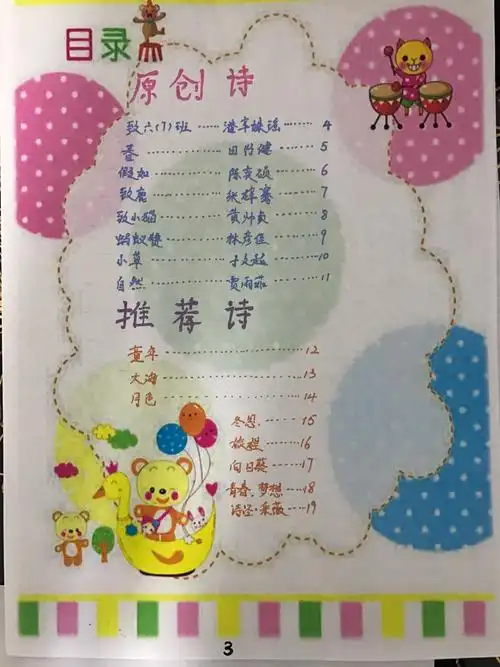 目录
原创诗
致六(7)班……潘宇姝瑶……4
春……田竹健……5
假如……陈奕硕……6
致鹿……张梓骞……7
致小猫……黄帅贞……8
蚂蚁……林彦佐……9
小草……10
自然……贾雨菲……11
推荐诗
童年……12
大海……13
月色……14
冬思……15
旅程……16
向日葵……17
青春,梦想……18
诗经·采薇……19
3